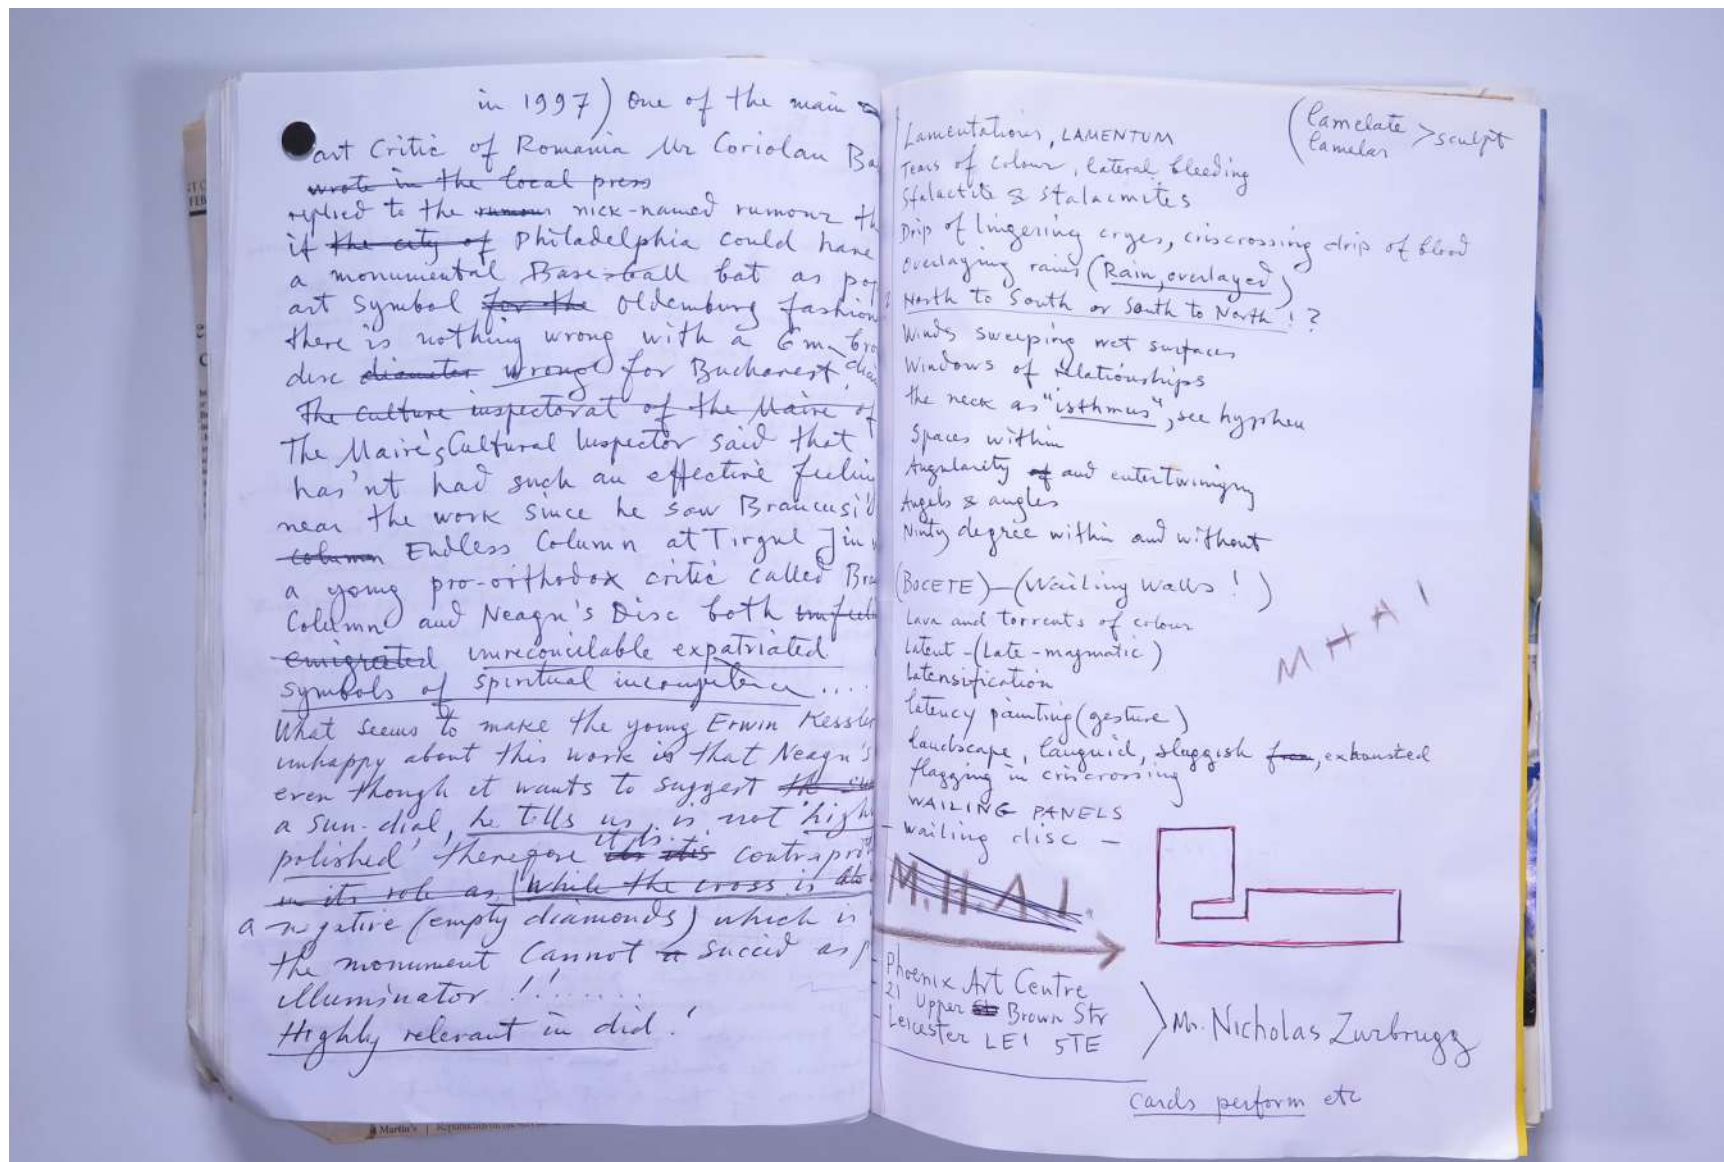 in 1997) One of the main
art Critic of Romania Mr Coriolan Ba
wrote in the local press
replied to the rumour nick-named rumour th
if the city of Philadelphia could have
a monumental Base-ball bat as pop
art symbol for the Oldemburg fashion
there is nothing wrong with a 6m bro
disc diameter wrong for Bucharest
The culture inspectorat of the Maire of
The Maire's Cultural Inspector said that
has'nt had such an effective feelin
near the work since he saw Brancusi's
column Endless Column at Tirgul Jiu
a young pro-orthodox critic called Bra
Column and Neagu's Disc both
emigrated unreconcilable expatriated
symbols of spiritual ....
What seems to make the young Erwin Kessle
unhappy about this work is that Neagu's
even though it wants to suggest
a sun-dial, he tells us, is not 'high
polished' therefore it is contrapro
in its role as while the cross is
a negative (empty diamonds) which is
the monument cannot succid as
illuminator !!.......
Highly relevant in did!
(lamelate
lamelar > sculpt
Lamentations, LAMENTUM
Tears of colour, lateral bleeding
Stalactite & stalacmites
Drip of lingering cryes, criscrossing drip of blood
Overlaying rains (Rain, overlayed)
North to South or South to North !?
Winds sweeping wet surfaces
Windows of relationships
the neck as "isthmus", see hyphen
Spaces within
Angularity of and entertwinigny
Angels & angles
Ninty degree within and without
(BOCETE) - (Wailing Walls !)
Lava and torrents of colour
Latent - (Late-magmatic)
Latensification
latency painting (gesture)
landscape, languid, sluggish, exhausted
flagging in criscrossing
WAILING PANELS
- wailing disc -
M H A I
M.H.A.I.
Phoenix Art Centre
21 Upper Brown Str
Leicester LE1 5TE
Mr. Nicholas Zurbrugg
cards perform etc
Martin's